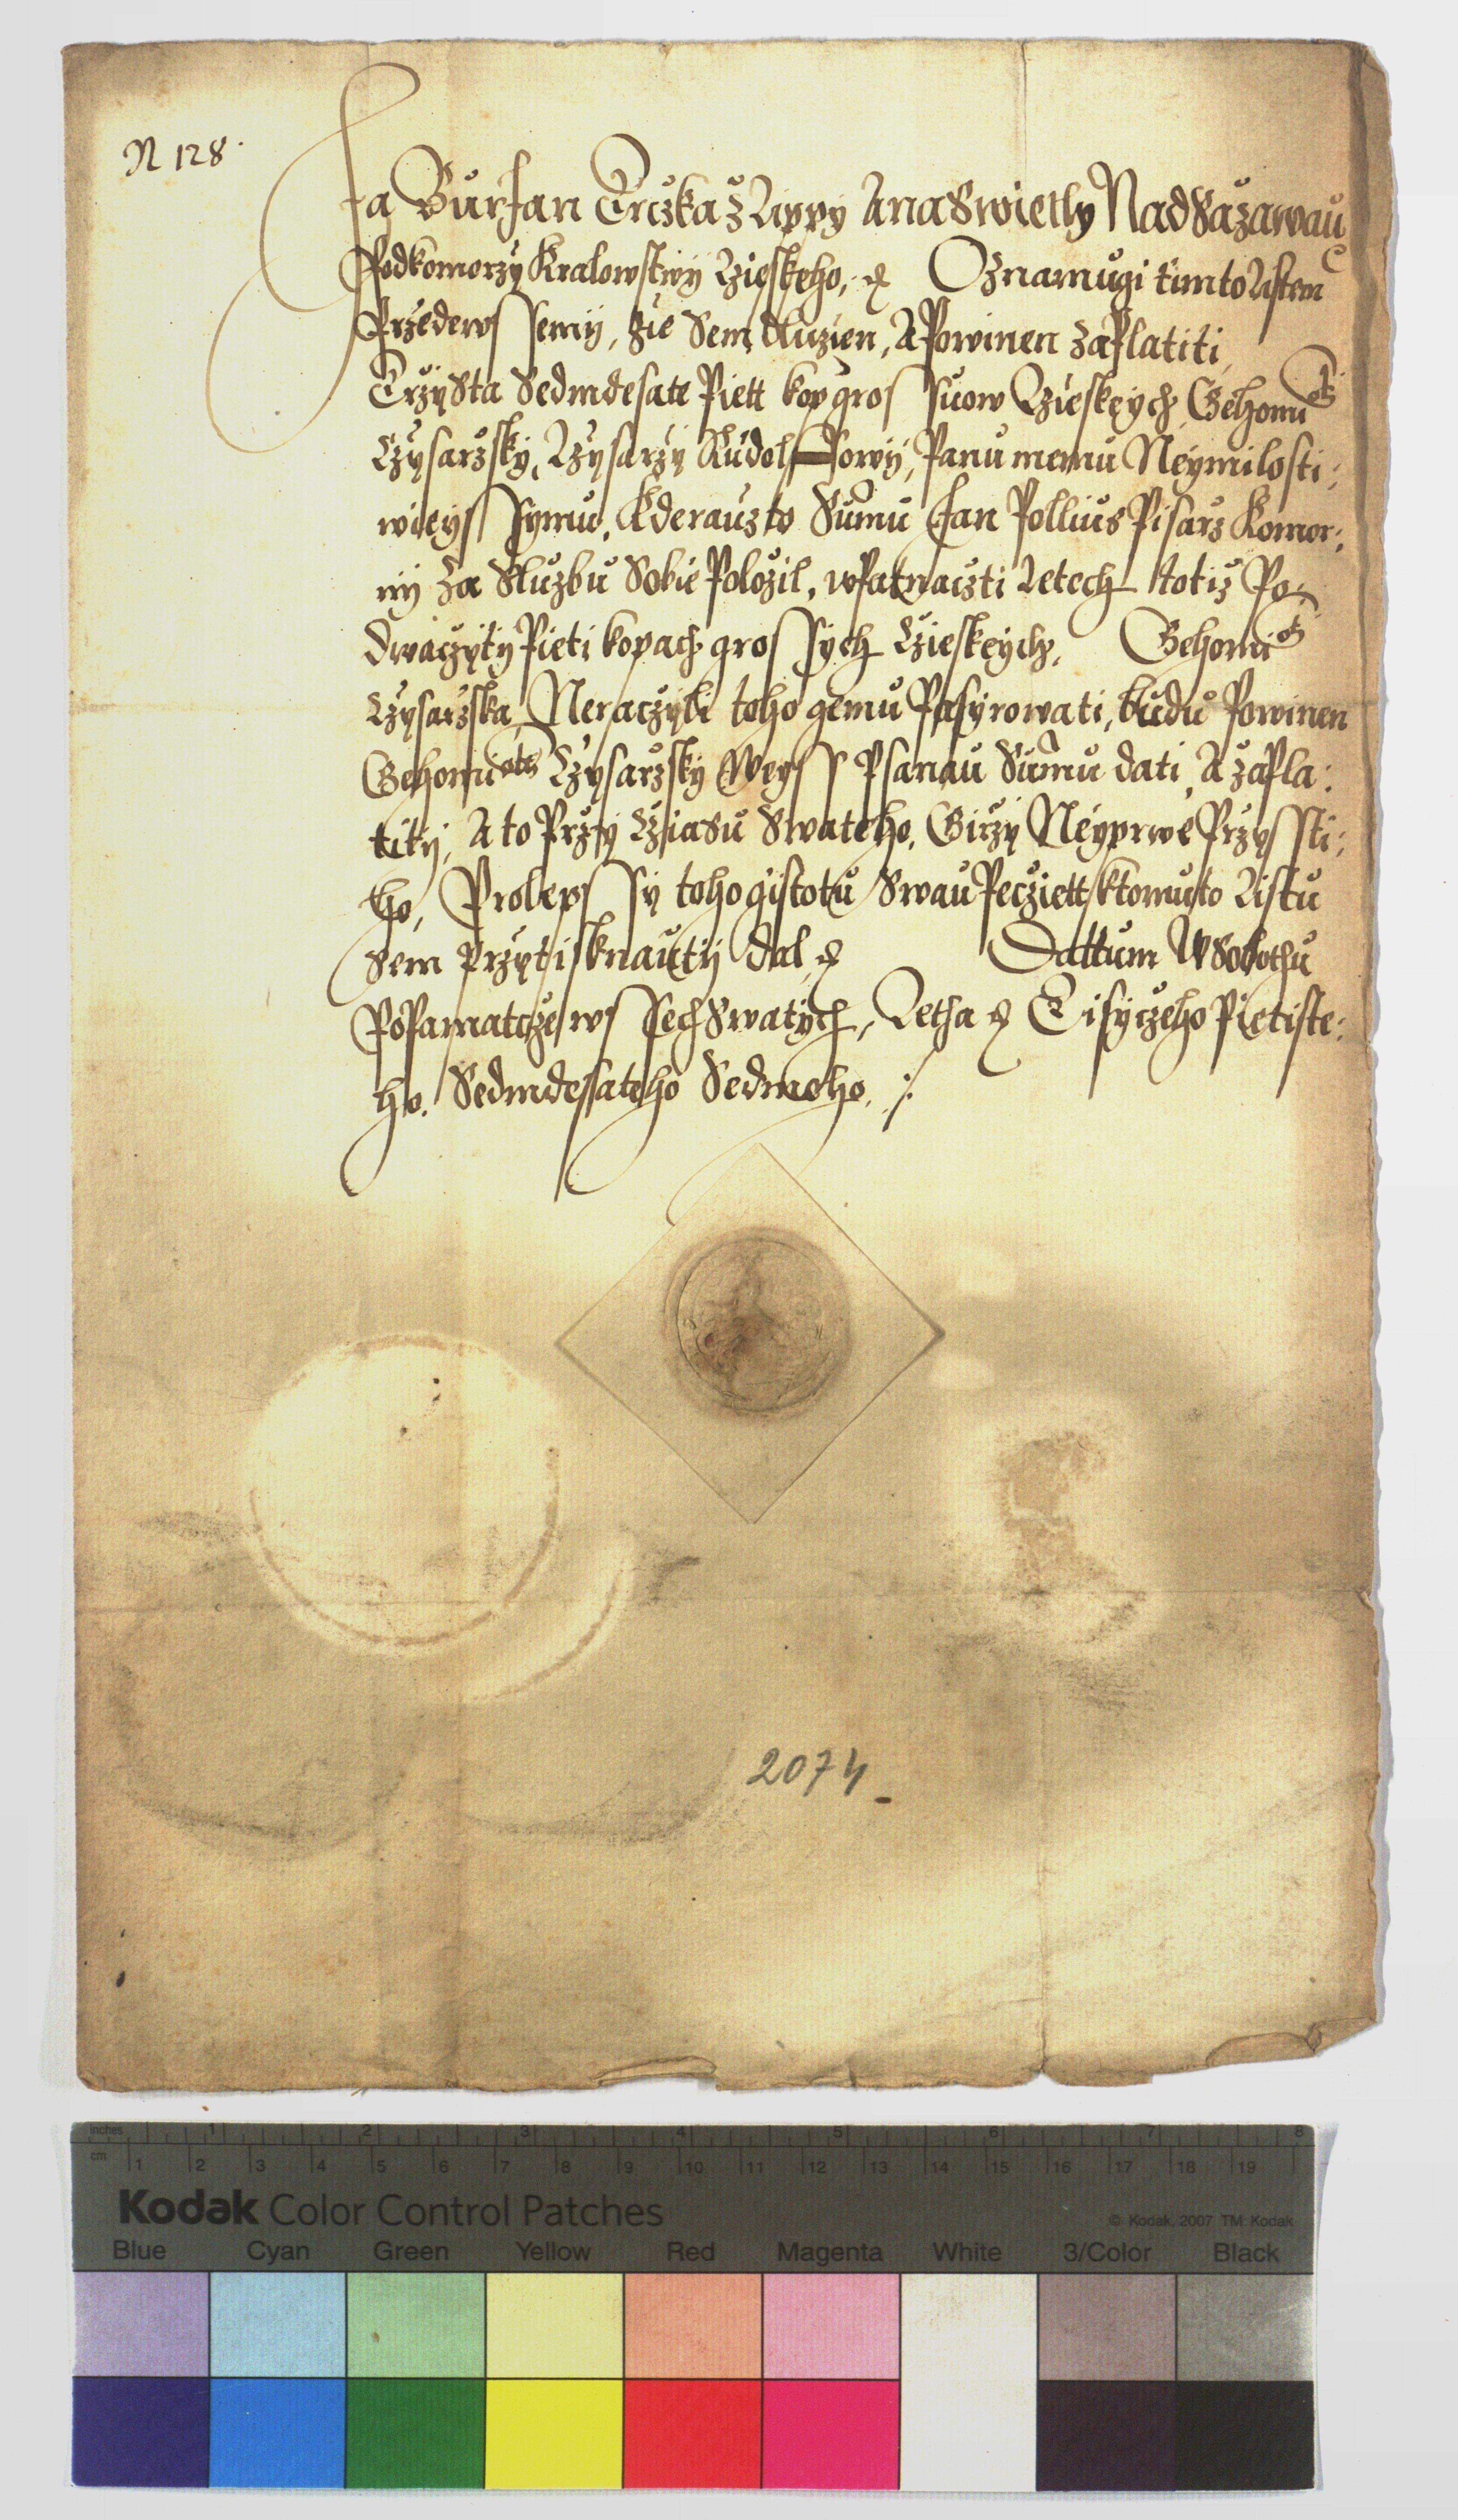 N 128.
Ja Burjan Trczka z Lippy A na Swietly Nad Sazawau
Podkomorzy Kralowstwy Czieskeho, &c Oznamugi timto Listem
Przedewssemy, zie Sem dluzien, A Powinen Zaplatiti,
Trzy Sta Sedmdesate Piett kop grossuow Czieskych, Gehomti
Czysarzsky, Czysarzy Rudolffowy, Panu memu Neymilosti:
wieyssymu, Kderauzto Summu Jan Pollius Pisarz Komor:
ny Za Sluzbu Sobie Polozil, w Patnaczti Letech totiz Po
dwaczyty Pieti kopach grossych Czieskych, Gehomti
Czysarzska, Neraczyli toho gemu Pasyrowati, budu Powinen
Gehomti Czysarzsky Weyss Psanau Summu dati, A zapla:
tity, A to Przy Cziasu Swateho, Girzy Neyprwe Przyssti:
ho, Pro lepssy toho gistotu Swau Pecziett k tomuto Listu
Sem Przytisknauty dal &c Dattum W Sobothu
Po Pamatcze wssech Swatych, Letha &c Tisyczeho Pietiste:
ho. Sedmdessateho Sedmeho. ./.
2074
inches 1 2 3 4 5 6 7 8
cm 1 2 3 4 5 6 7 8 9 10 11 12 13 14 15 16 17 18 19
Kodak Color Control Patches
© Kodak, 2007 TM: Kodak
Blue Cyan Green Yellow Red Magenta White 3/Color Black